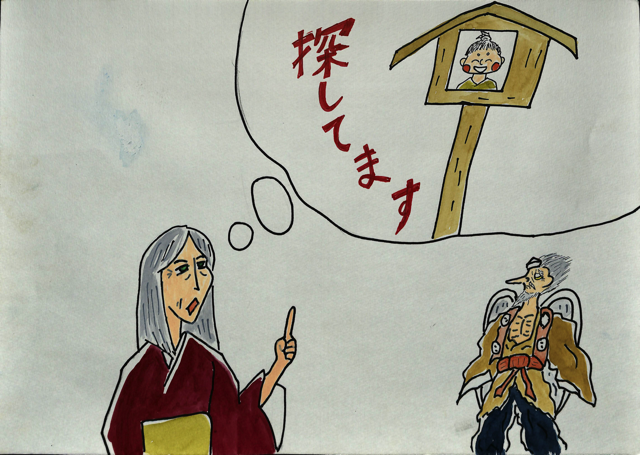 探してます